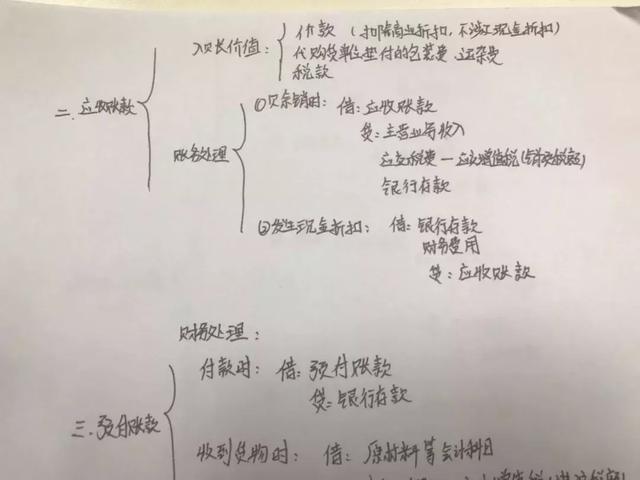 入账价值：
价款（扣除商业折扣，不减现金折扣）
代购货单位垫付的包装费 运杂费
税款
二.应收账款
账务处理
①赊销时：借：应收账款
贷：主营业务收入
应交税费—应交增值税（销项税额）
银行存款
②发生现金折扣：借：银行存款
财务费用
贷：应收账款
财务处理：
付款时：借：预付账款
贷：银行存款
三.预付账款
收到货物时：借：原材料等会计科目